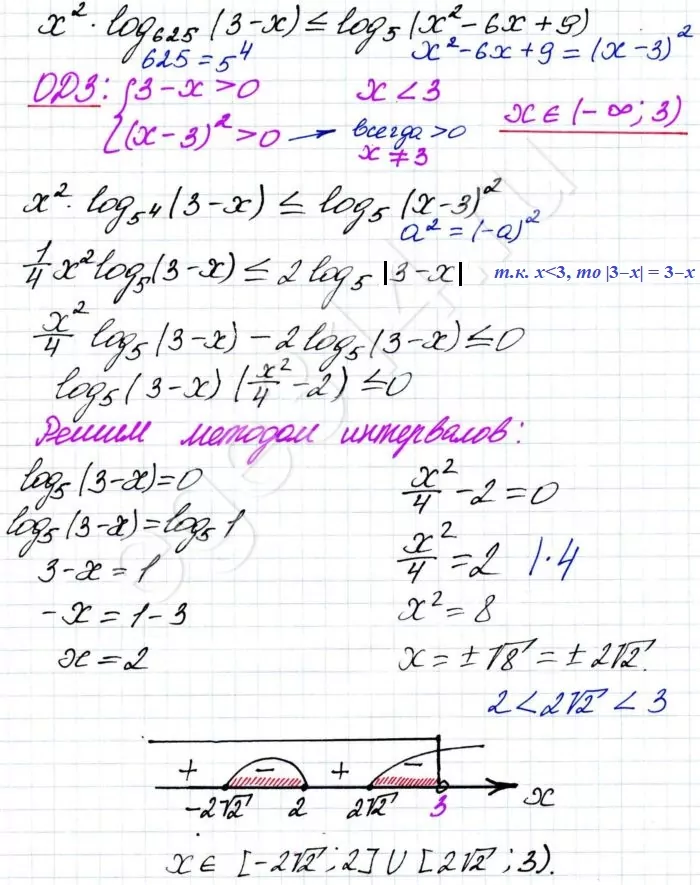 x² · log₆₂₅ (3-x) ≤ log₅ (x² - 6x + 9)
625 = 5⁴ x² - 6x + 9 = (x-3)²
ОДЗ: { 3-x > 0 x < 3
(x-3)² > 0 → всегда > 0 x ∈ (-∞; 3)
x ≠ 3
x² · log₅⁴ (3-x) ≤ log₅ (x-3)²
a² = (-a)²
1/4 x² log₅ (3-x) ≤ 2 log₅ |3-x| т.к. x<3, то |3–x| = 3–x
x²/4 log₅ (3-x) - 2 log₅ (3-x) ≤ 0
log₅ (3-x) (x²/4 - 2) ≤ 0
Решим методом интервалов:
log₅ (3-x) = 0 x²/4 - 2 = 0
log₅ (3-x) = log₅ 1 x²/4 = 2 | · 4
3-x = 1 x² = 8
-x = 1-3 x = ±√8 = ±2√2.
x = 2
2 < 2√2 < 3
+ - + -
-2√2 2 2√2 3 x
x ∈ [-2√2; 2] U [2√2; 3).